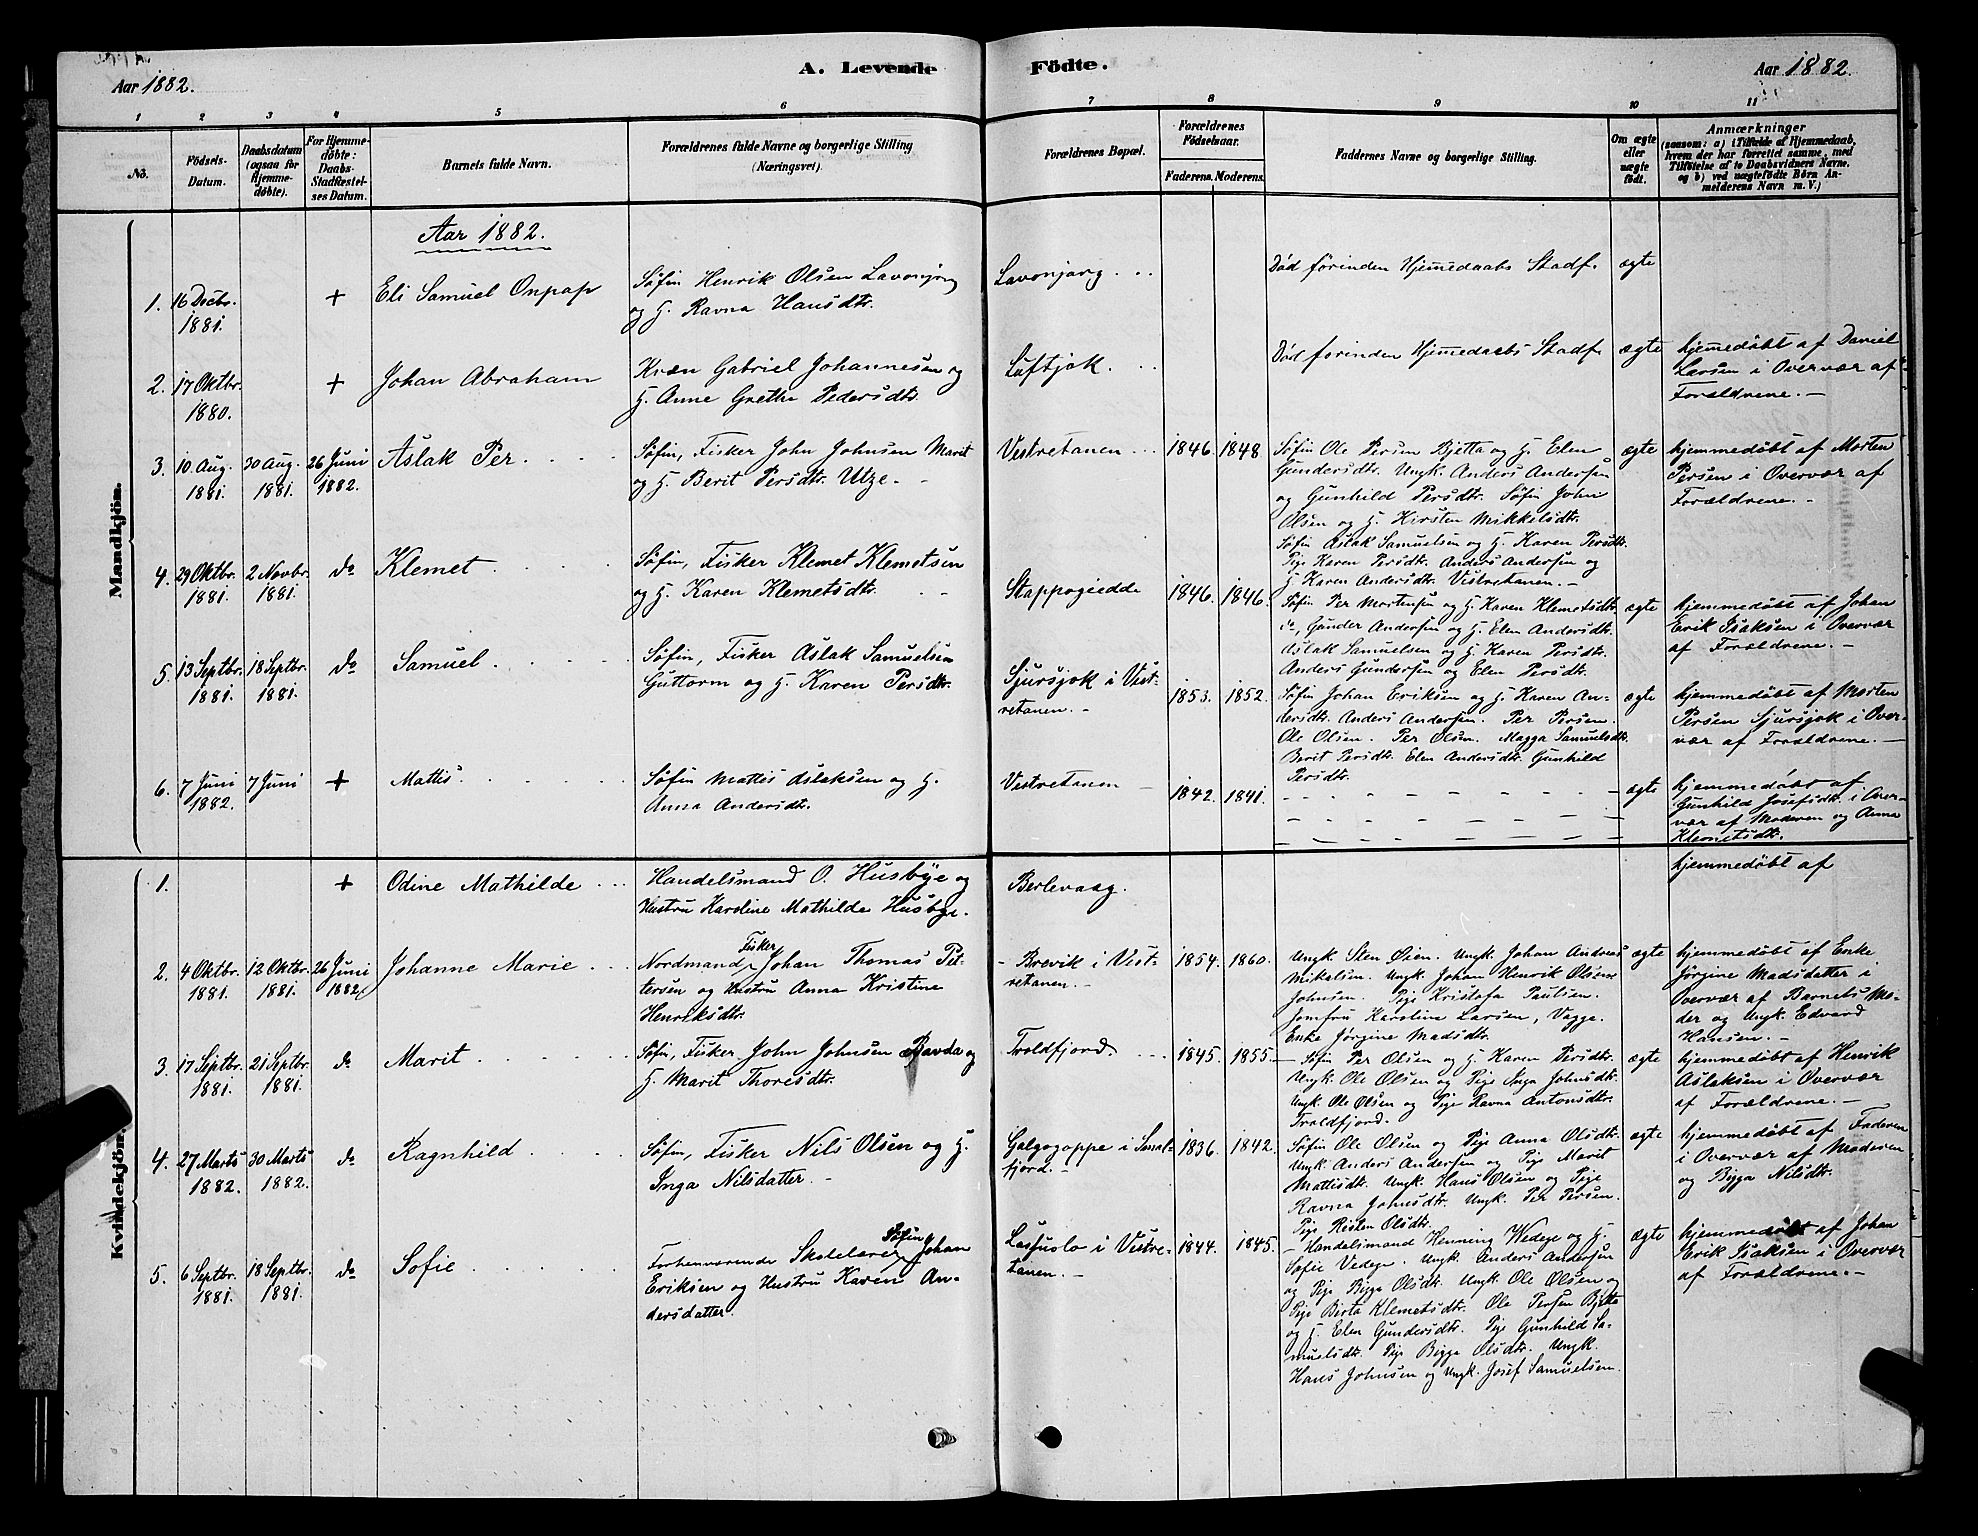 A. Levende Födte.
Aar 1882.
Aar 1882.
1 2 3 4 5 6 7 8 9 10 11
No.
Födsels-
Datum.
Daabsdatum
(ogsaa for
Hjemme-
döbte).
For Hjemme-
döbte:
Daabs-
Stadfæstel-
ses Datum.
Barnets fulde Navn.
Forældrenes fulde Navne og borgerlige Stilling
(Næringsvei).
Forældrenes Bopæl.
Forældrenes
Födselsaar.
Faderens. Moderens.
Faddernes Navne og borgerlige Stilling.
Om ægte
eller
uægte
födt.
Anmærkninger
(saasom: a) i Tilfælde af Hjemmedaab,
hvem der har forrettet samme, med
Tilföielse af to Daabsvidners Navne,
og b) ved uægtefödte Börn An-
melderens Navn m. V.)
Mandkjön.
Aar 1882.
1. 16 Decbr.
1881.
+
Eli Samuel Onpap
Søfin Henrik Olsen Lavonjarg
og H. Ravna Hansdtr.
Lavonjarg
Død forinden Hjemedaabs Stadf.
ægte
2. 17 Oktbr.
1880.
+
Johan Abraham
Kvæn Gabriel Johannesen og
H. Anne Grethe Pedersdtr.
Luftjok.
Død forinden Hjemedaabs Stadf.
ægte
hjemedøbt af Daniel
Larsen i Overvær af
Forældrene. –
3. 10 Aug.
1881.
30 Aug.
1881.
26 Juni
1882.
Aslak Per
Søfin, Fisker John Johnsen Marit
og H. Berit Persdtr. Utze. –
Vestretanen
1846. 1848.
Søfin Ole Persen Bjetta og H. Elen
Gundersdtr. Ungk. Anders Andersen
og Gunhild Persdtr. Søfin John
Olsen og H. Kirsten Mikkelsdtr.
Søfin Aslak Samuelsen og H. Karen Persdtr.
Pige Karen Persdtr. Anders Andersen og
H. Karen Andersdtr. Vestretanen. –
ægte
hjemmedøbt af Morten
Persen i Overvær af
Forældrene. –
4. 29 Oktbr.
1881.
2 Novbr.
1881.
do
Klemet
Søfin, Fisker Klemet Klemetsen
og H. Karen Klemetsdtr.
Stappogiedde
1846. 1846.
Søfin Per Mortensen og H. Karen Klemetsdtr.
do, Gunder Andersen og H. Elen Andersdtr.
Aslak Samuelsen og H. Karen Persdtr.
Anders Gundersen og Elen Persdtr.
ægte
hjemmedøbt af Johan
Erik Isaksen i Overvær
af Forældrene. –
5. 13 Septbr.
1881.
18 Septbr.
1881.
do
Samuel
Søfin, Fisker Aslak Samuelsen
Guttorm og H. Karen Persdtr.
Sjursjok i Vest-
retanen. –
1853. 1852.
Søfin Johan Eriksen og H. Karen An-
dersdtr. Anders Andersen. Per Persen.
Ole Olsen. Per Olsen. Magga Samuelsdtr.
Berit Persdtr. Elen Andersdtr. Gunhild
Persdtr.
ægte
hjemmedøbt af Morten
Persen Sjursjok i Over-
vær af Forældrene. –
6. 7 Juni
1882.
7 Juni
+
Mattis
Søfin Mattis Aslaksen og H.
Anna Andersdtr.
Vestretanen –
1842. 1841.
ægte
hjemmedøbt af
Gunhild Josefsdtr. i Over-
vær af Moderen og Anna
Klemetsdtr.
Kvindekjön.
1.
+
Odine Mathilde
Handelsmand O. Husbye og
Hustru Kardine Mathilde Husbye.
Berlevaag.
hjemmedøbt af
2. 4 Oktbr.
1881.
12 Oktbr.
1881.
26 Juni
1882
Johanne Marie
Nordmand, Fisker Johan Thomas Pet-
tersen og Hustru Anna Kristine
Henriksdtr.
Brevik i Vest-
retanen. –
1854. 1860.
Ungk. Sten Øien. Ungk. Johan Andreas
Mikelsen. Ungk. Johan Henrik Olsen
Johnsen. Pige Kristofa Paulsen.
Jomfru Karoline Larsen, Vagge.
Enke Jørgine Madsdtr.
ægte
hjemmedøbt af Enke
Jørgine Madsdatter i
Overvær af Barnets Mo-
der og Ungk. Edvard
Hansen. –
3. 17 Septbr.
1881.
21 Septbr.
1881.
do
Marit
Søfin, Fisker John Johnsen Bavda og
H. Marit Thoresdtr.
Troldfjord.
1845. 1855.
Søfin Per Olsen og H. Karen Persdtr.
Ungk. Ole Olsen og Pige Inga Johnsdtr.
Ungk. Ole Olsen og Pige Ravna Antonsdtr.
Troldfjord.
ægte
hjemmedøbt af Henrik
Aslaksen i Overvær
af Forældrene. –
4. 27 Marts
1882.
30 Marts
1882.
do
Ragnhild
Søfin, Fisker Nils Olsen og H.
Inga Nilsdatter. –
Galgogoppe i Smal-
fjord. –
1836. 1842.
Søfin Ole Olsen og Pige Anna Olsdtr.
Ungk. Anders Andersen og Pige Marit
Mattisdtr. Ungk. Hans Olsen og Pige
Ravna Johnsdtr. Ungk. Per Persen.
Pige Risten Olsdtr.
ægte
hjemmedøbt af Faderen
i Overvær af Moderen
og Bigga Nilsdtr.
5. 6 Septbr.
1881.
18 Septbr.
1881.
do
Sofie
Forhenværende Skolelærer, Søfin Johan
Eriksen og Hustru Karen An-
dersdatter.
Lasfuolo i Vestre-
tanen. –
1844. 1845.
Handelsmand Henning Wedege og H.
Sofie Vedege. Ungk. Anders Andersen
og Pige Bigga Olsdtr. Ungk Ole Olsen og
Pige Berta Klemetsdtr. Ole Persen Bjetta
og H. Elen Gundersdtr. Pige Gunhild Sa-
muelsdtr. Pige Bigga Olsdtr. Ungk.
Hans Johnsen og Ungk. Josef Samuelsen.
ægte
hjemmedøbt af Johan
Erik Isaksen i Overvær
af Forældrene. –